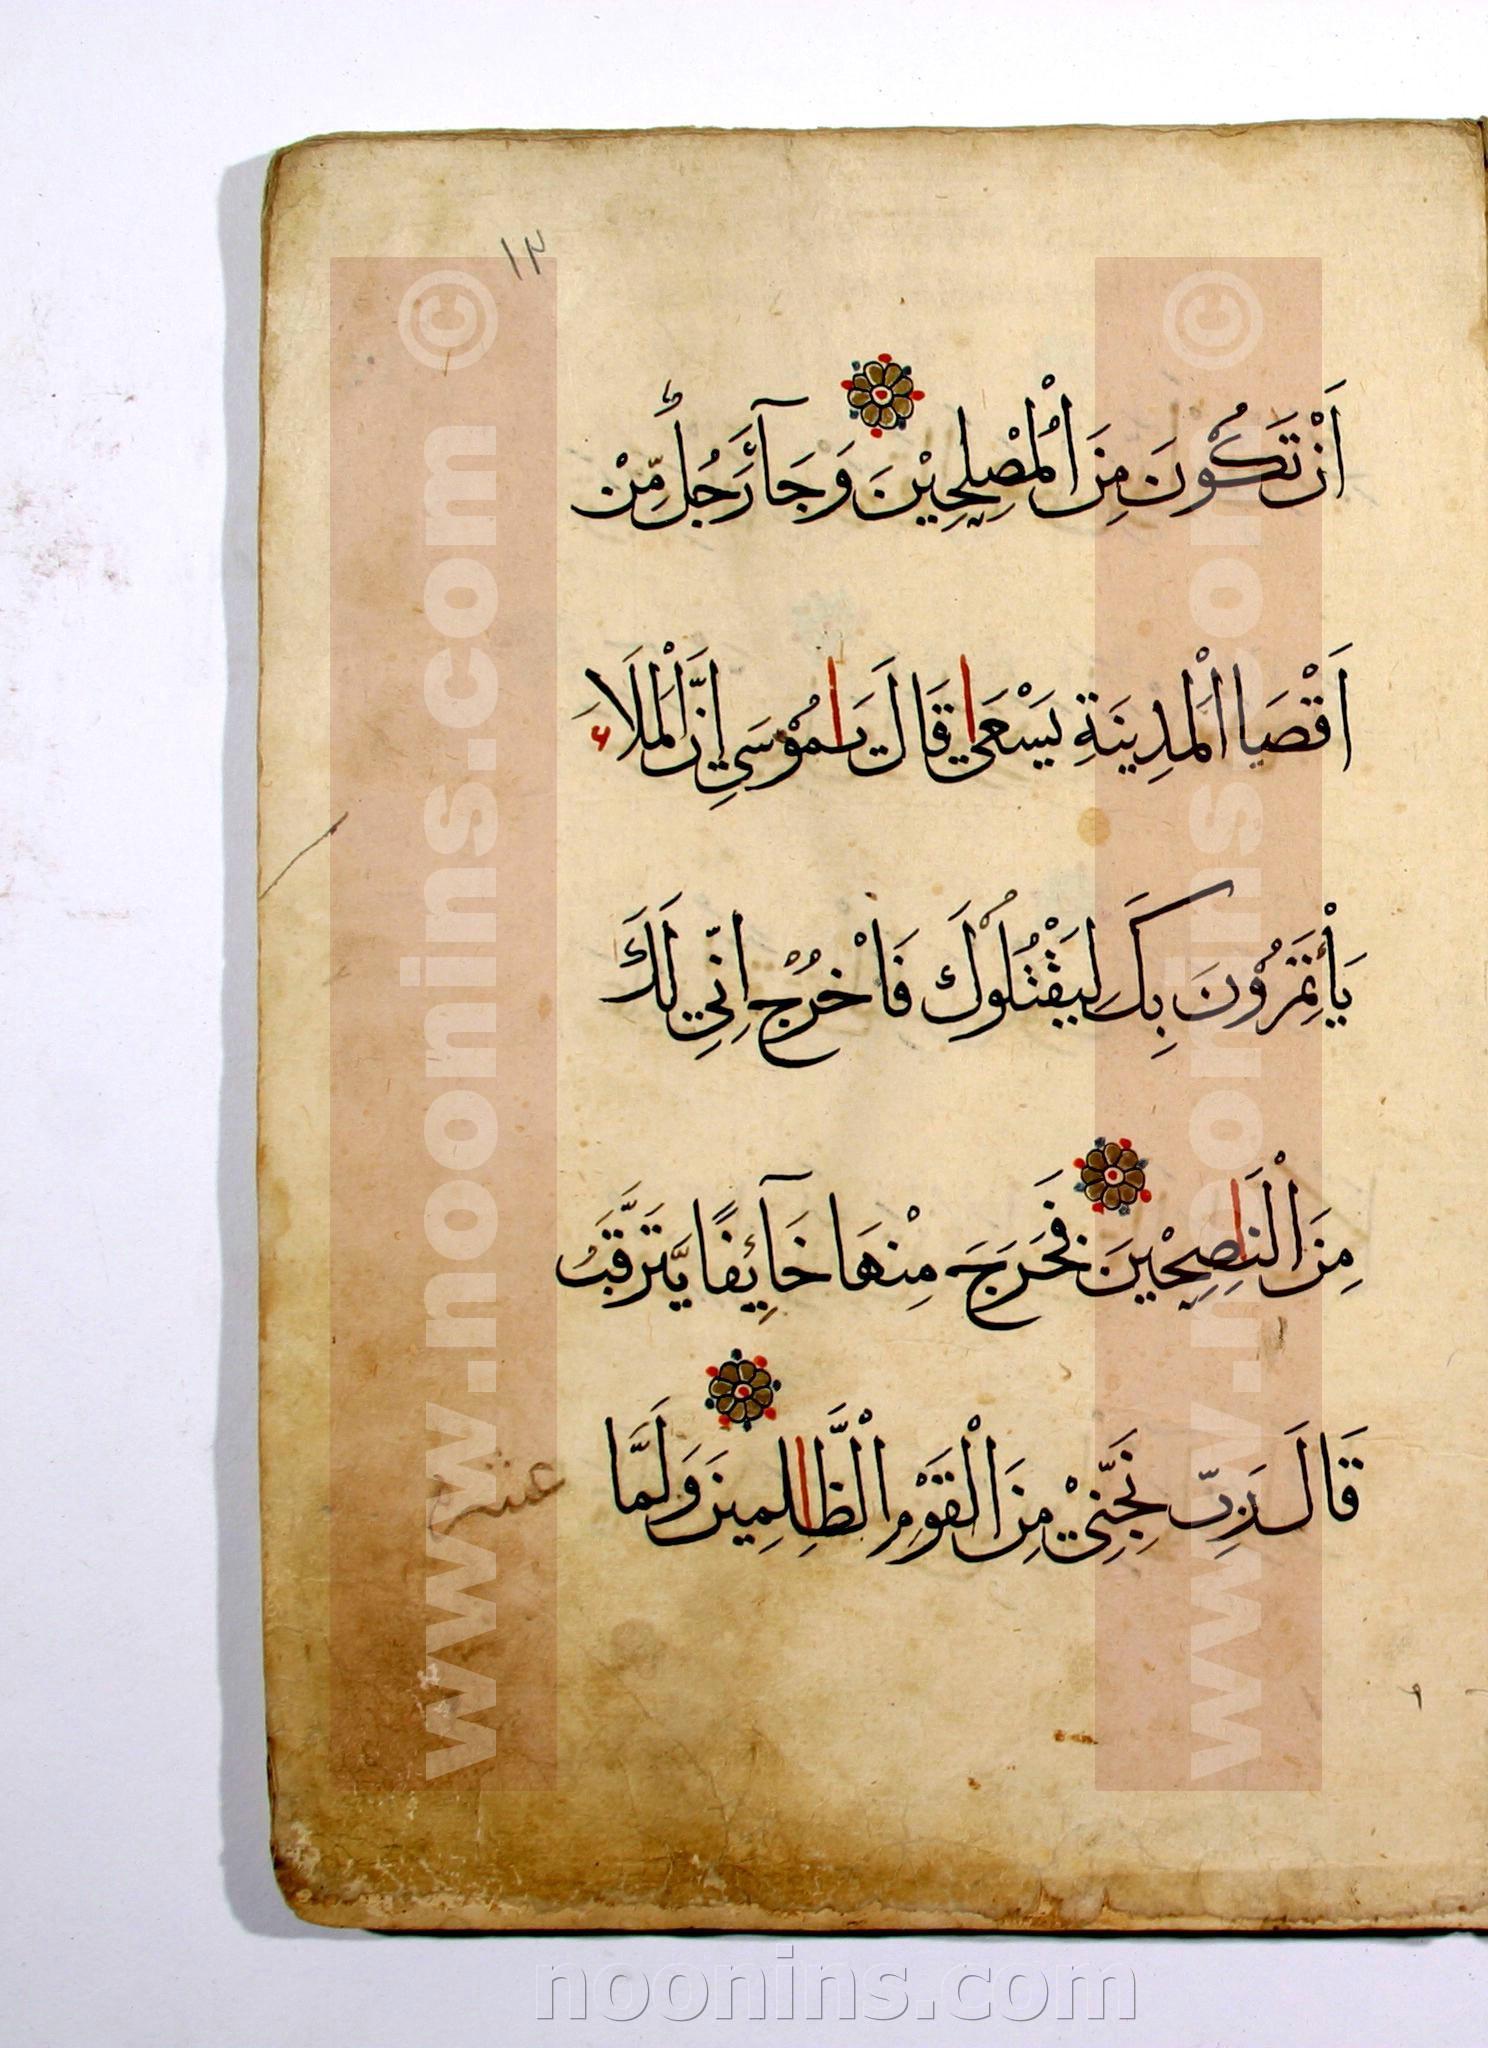 ١٣
اَنْ تَكُوْنَ مِنَ الْمُصْلِحِيْنَ وَجَآءَ رَجُلٌ مِّنْ
اَقْصَا الْمَدِيْنَةِ يَسْعٰى قَالَ يٰمُوْسٰى اِنَّ الْمَلَاَ
يَأْتَمِرُوْنَ بِكَ لِيَقْتُلُوْكَ فَاخْرُجْ اِنِّيْ لَكَ
مِنَ النّٰصِحِيْنَ فَخَرَجَ مِنْهَا خَآئِفًا يَّتَرَقَّبُ
قَالَ رَبِّ نَجِّنِيْ مِنَ الْقَوْمِ الظّٰلِمِيْنَ وَلَمَّا
عشر
www.noonins.com ©
www.noonins.com ©
noonins.com